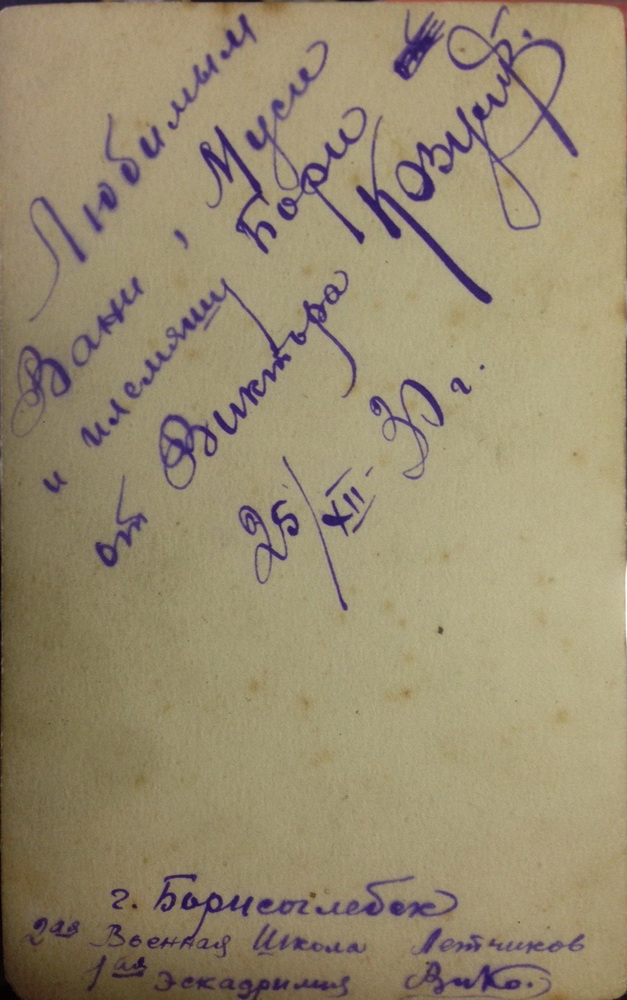 Любимым
Вани, Муси
и племяшу Бори
от Виктора
25/XII-30 г.
г. Борисоглебск
2ая Военная Школа Летчиков
1ая Эскадрилия ВиКо.